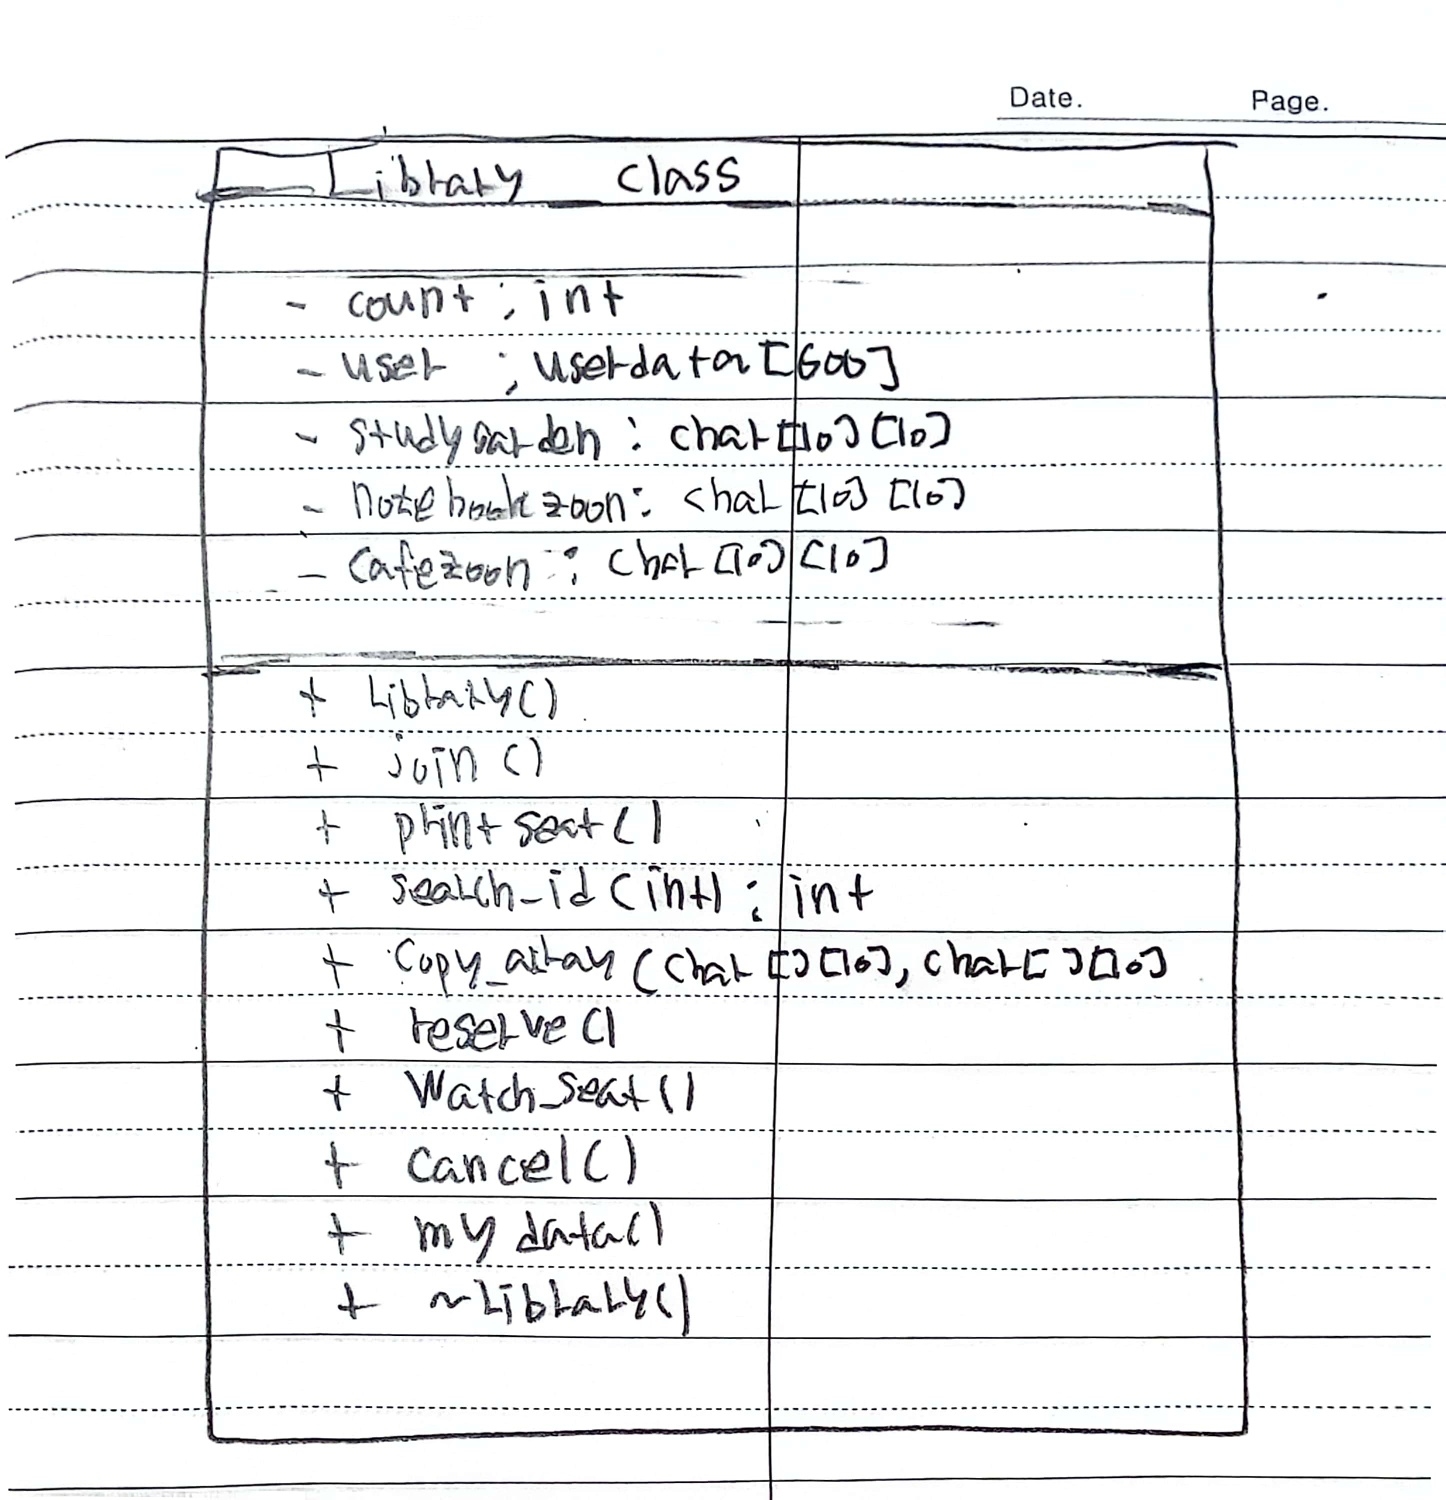 Date. Page.
Library class
- count : int
- user : userdata[600]
- studygarden : char[10][10]
- notebookzoon : char[10][10]
- cafezoon : char[10][10]
+ Library()
+ join()
+ print seat()
+ search_id(int) : int
+ Copy_array(char[][10], char[][10]
+ reserve()
+ Watch_seat()
+ cancel()
+ my data()
+ ~Library()